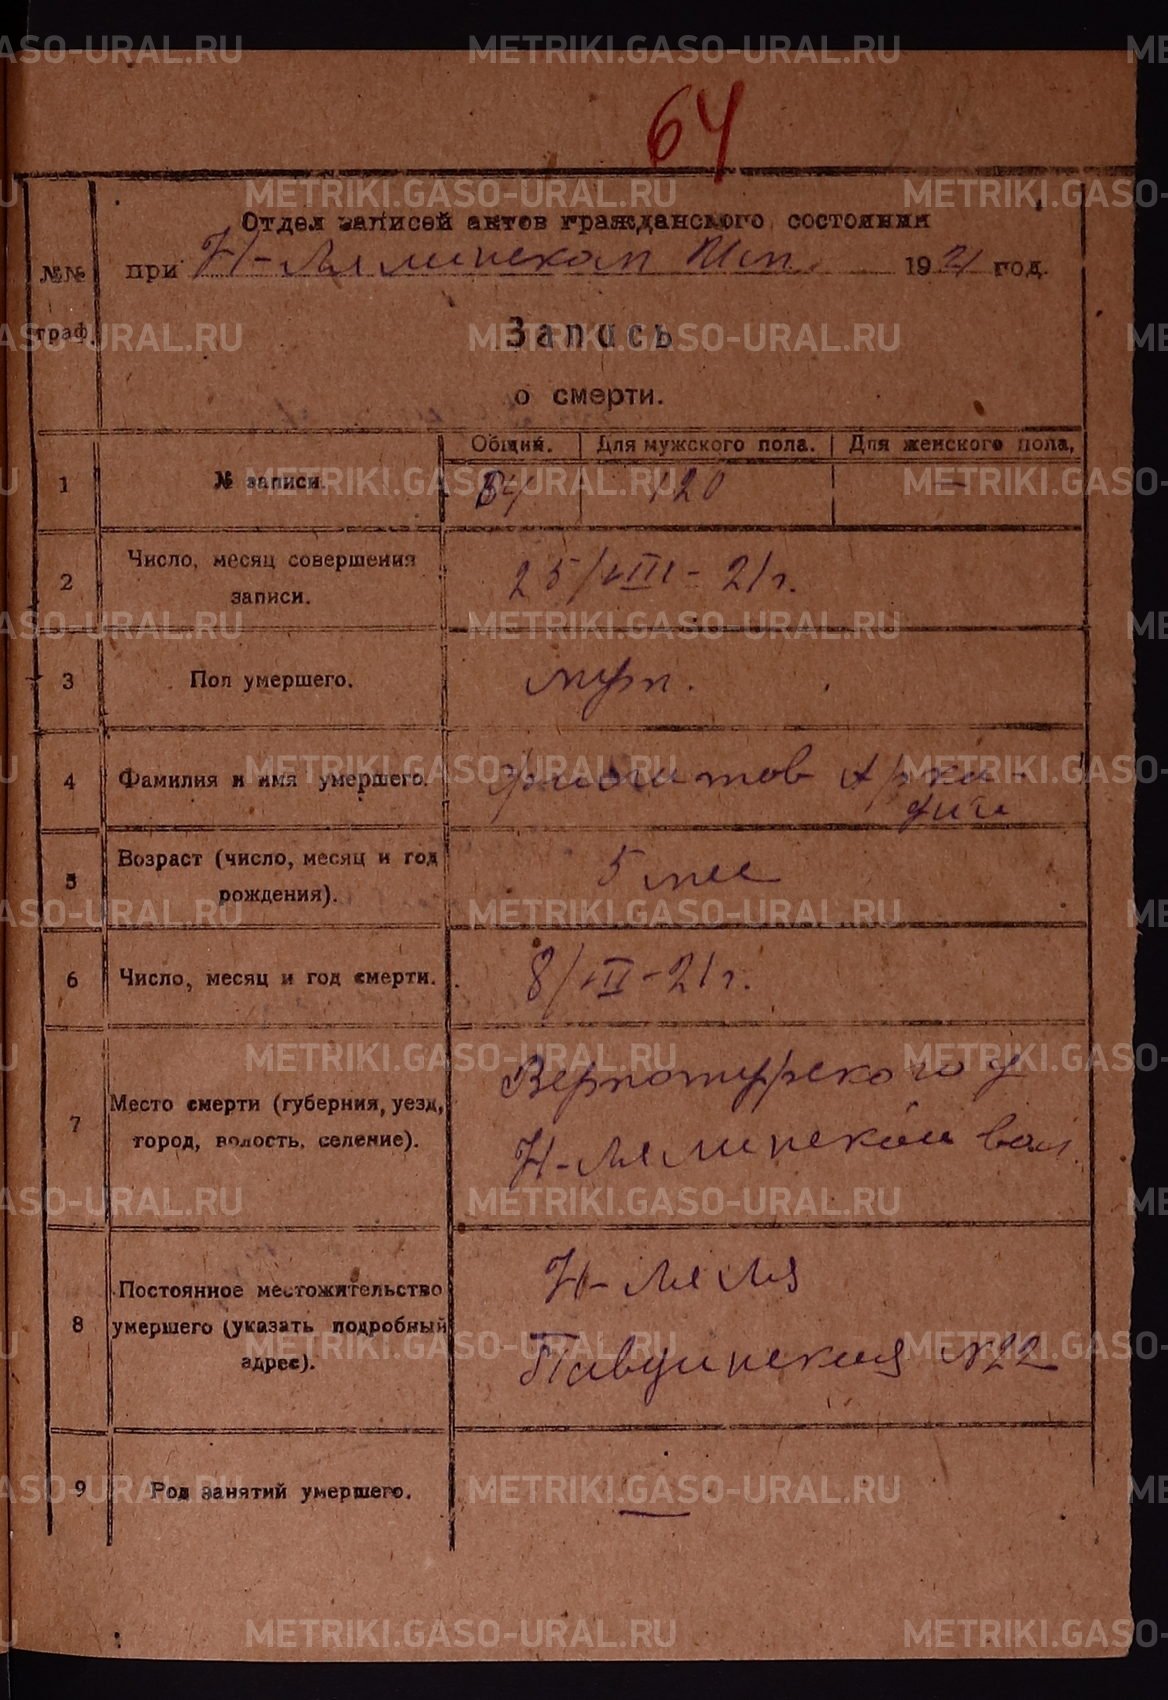 64
Отдел записей актов гражданского состояния
при Н-Лялинском Исп. 1921 год.
№№ граф.
Запись
о смерти.
Общий. Для мужского пола. Для женского пола.
1 № записи. 64 120 —
2 Число, месяц совершения
записи. 25/VIII-21 г.
3 Пол умершего. муж.
4 Фамилия и имя умершего. Филатов Арка-
дий
5 Возраст (число, месяц и год
рождения). 5 мес
6 Число, месяц и год смерти. 8/VII-21 г.
7 Место смерти (губерния, уезд,
город, волость, селение).
Верхотурского у
Н-Лялинской вол.
8 Постоянное местожительство
умершего (указать подробный
адрес).
Н-Ляля
Павдинская №22
9 Род занятий умершего. —
METRIKI.GASO-URAL.RU